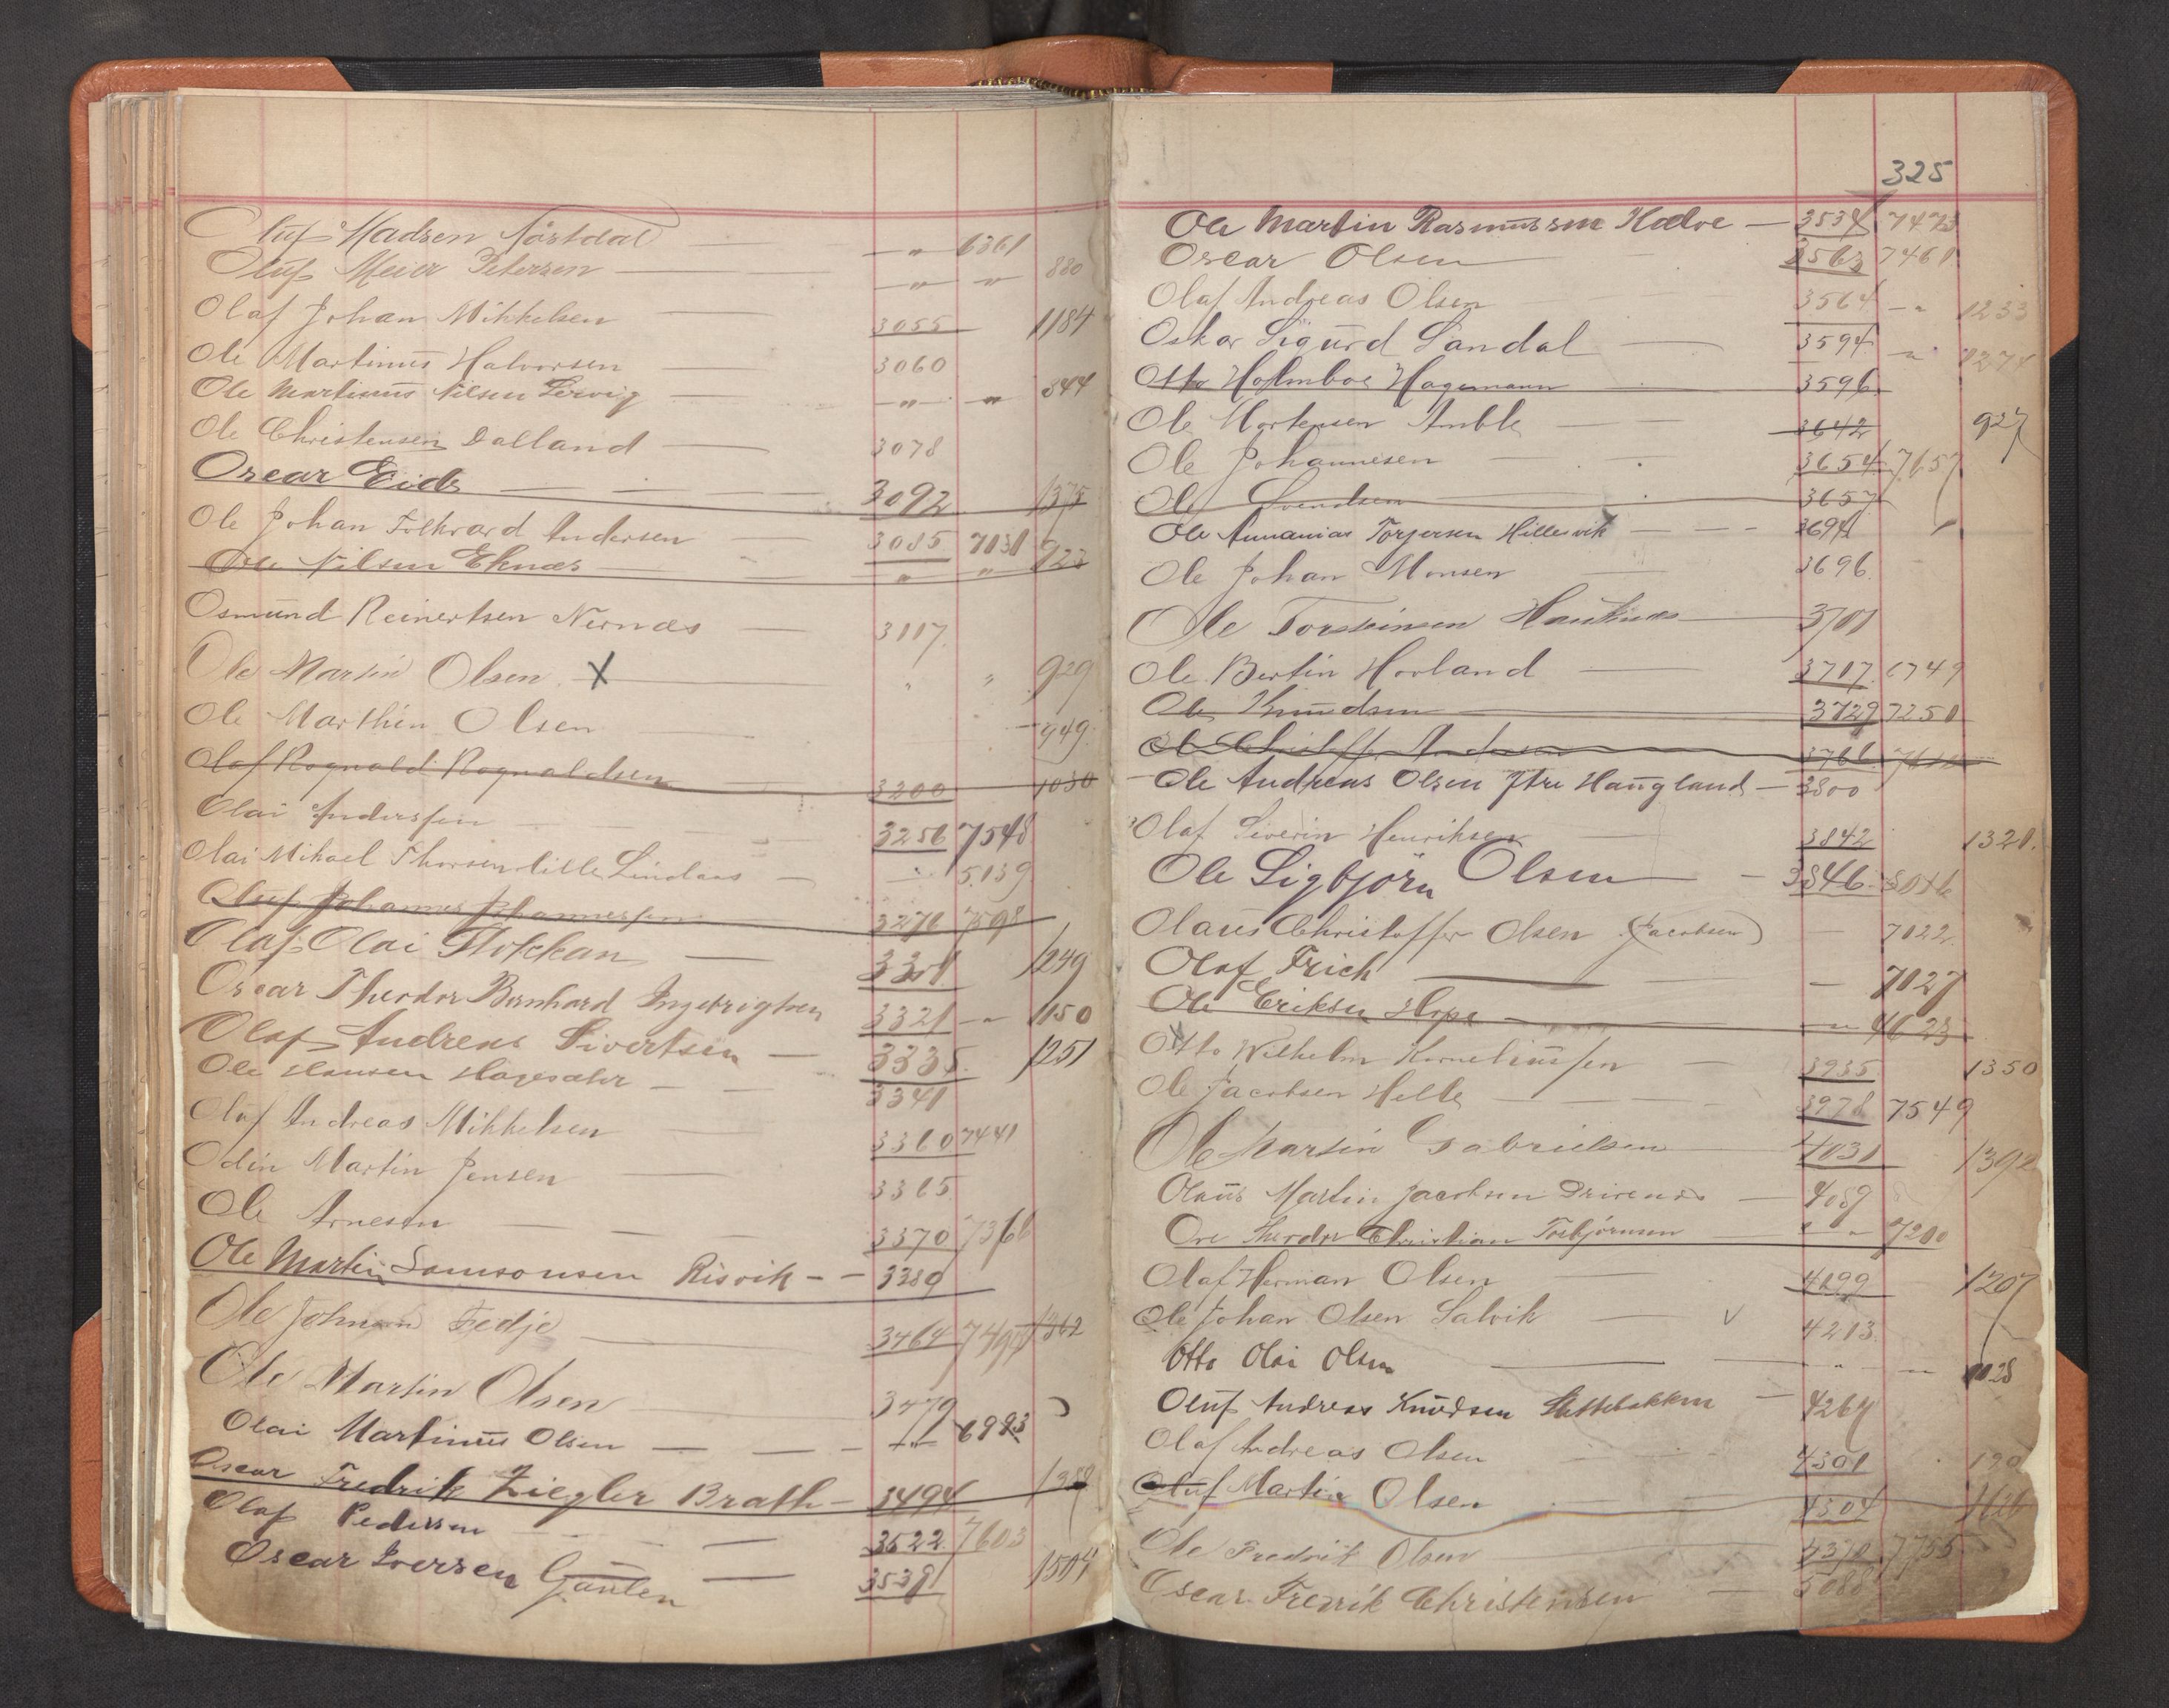 Oluf Madsen Nørstdal — " 6361
Oluf Meier Petersen — " " 880
Olaf Johan Mikkelsen — 3055 1184
Ole Martinus Halvorsen — 3060
Ole Martinus Nilsen Lervig — " " 844
Ole Christensen Dalland — 3078
Oscar Eide — 3092 1375
Ole Johan Folkvard Andersen — 3085 7031 923
Ole Nilsen Eknæs " "
Osmund Reinertsen Nernæs — 3117
Ole Martin Olsen X " " 929
Ole Marthin Olsen — 949
Olaf Rognald Rognaldsen 3200 1030
Olai Anderssen 3256 7548
Olai Mikael Thorsen lille Lindaas — 5139
Oluf Johannes Johannessen 3270 7598
Olaf Olai Flokkan — 3301 1249
Oscar Theodor Bernhard Ingebrigtsen 3321 - " 1150
Olaf Andreas Sivertsen — 3335 1251
Ole Hansen Hagesæter — 3341
Oluf Andreas Mikkelsen — 3360 7441
Odin Martin Jensen — 3365
Ole Arnesen — 3370 7368
Ole Martin Samsonsen Risvik - - 3389
Ole Johnsen Fedje — 3464 1362
Ole Martin Olsen — 3479
Olai Martinus Olsen — " 6993
Oscar Fredrik Ziegler Brath — 3494
Olaf Pedersen — 3522 7603
Oscar Iversen Gaulen — 3539 1504
325
Ole Martin Rasmussen Hælve — 3534 7473
Oscar Olsen — 3563 7461
Olaf Andreas Olsen 3564 - " 1233
Oskar Sigurd Sandal — 3594 " 1274
Otto Holmboe Hagemann 3596
Ole Mortensen Amble — 3642 927
Ole Johannesen — 3654 7657
Ole Svendsen 3657
Ole Annanias Torjersen Hillesvik - - - 3694
Ole Johan Monsen — 3696
Ole Torsteinsen Hauknæs — 3701
Ole Bertin Hovland — 3707 6749
Ole Knudsen — 3729 7250
Ole Christoffer Andersen 3766
Ole Andreas Olsen Ytre Haugland — 3800
Olaf Severin Henriksen — 3842 1321
Ole Sigbjørn Olsen — 3846 8046
Olaus Christoffer Olsen (Jacobsen) — 7022
Olaf Frich — 7027
Ole Eriksen Hope — " 4623
Otto Wilhelm Korneliussen — 3935 1350
Ole Jacobsen Helle — 3978 7549
Ole Martin Gabrielsen 4031 1392
Olaus Martin Jacobsen Drivenes — 4089
Ove Theodor Christian Torbjørnsen " " 7200
Olaf Herman Olsen — 4199 1207
Ole Johan Olsen Salvik — V 4213
Otto Olai Olsen — " — 1028
Oluf Andreas Knudsen Slettebakken — 4264
Olaf Andreas Olsen 4301
Oluf Martin Olsen 4304
Ole Fredrik Olsen 4370 7755
Oscar Fredrik Christensen — 5088